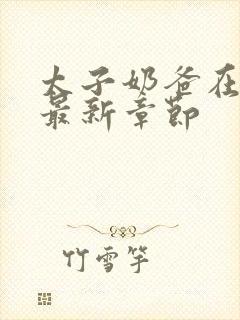 太子奶爸在
最新章節
竹雪竿